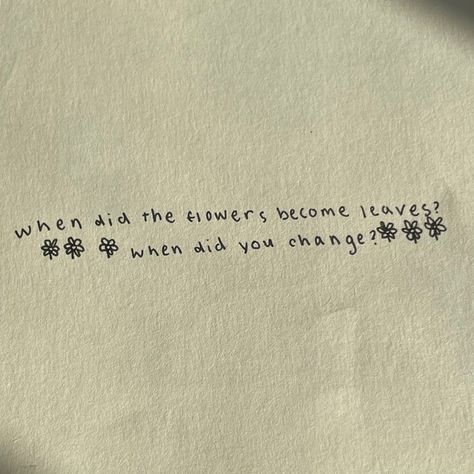 when did the flowers become leaves?
when did you change?